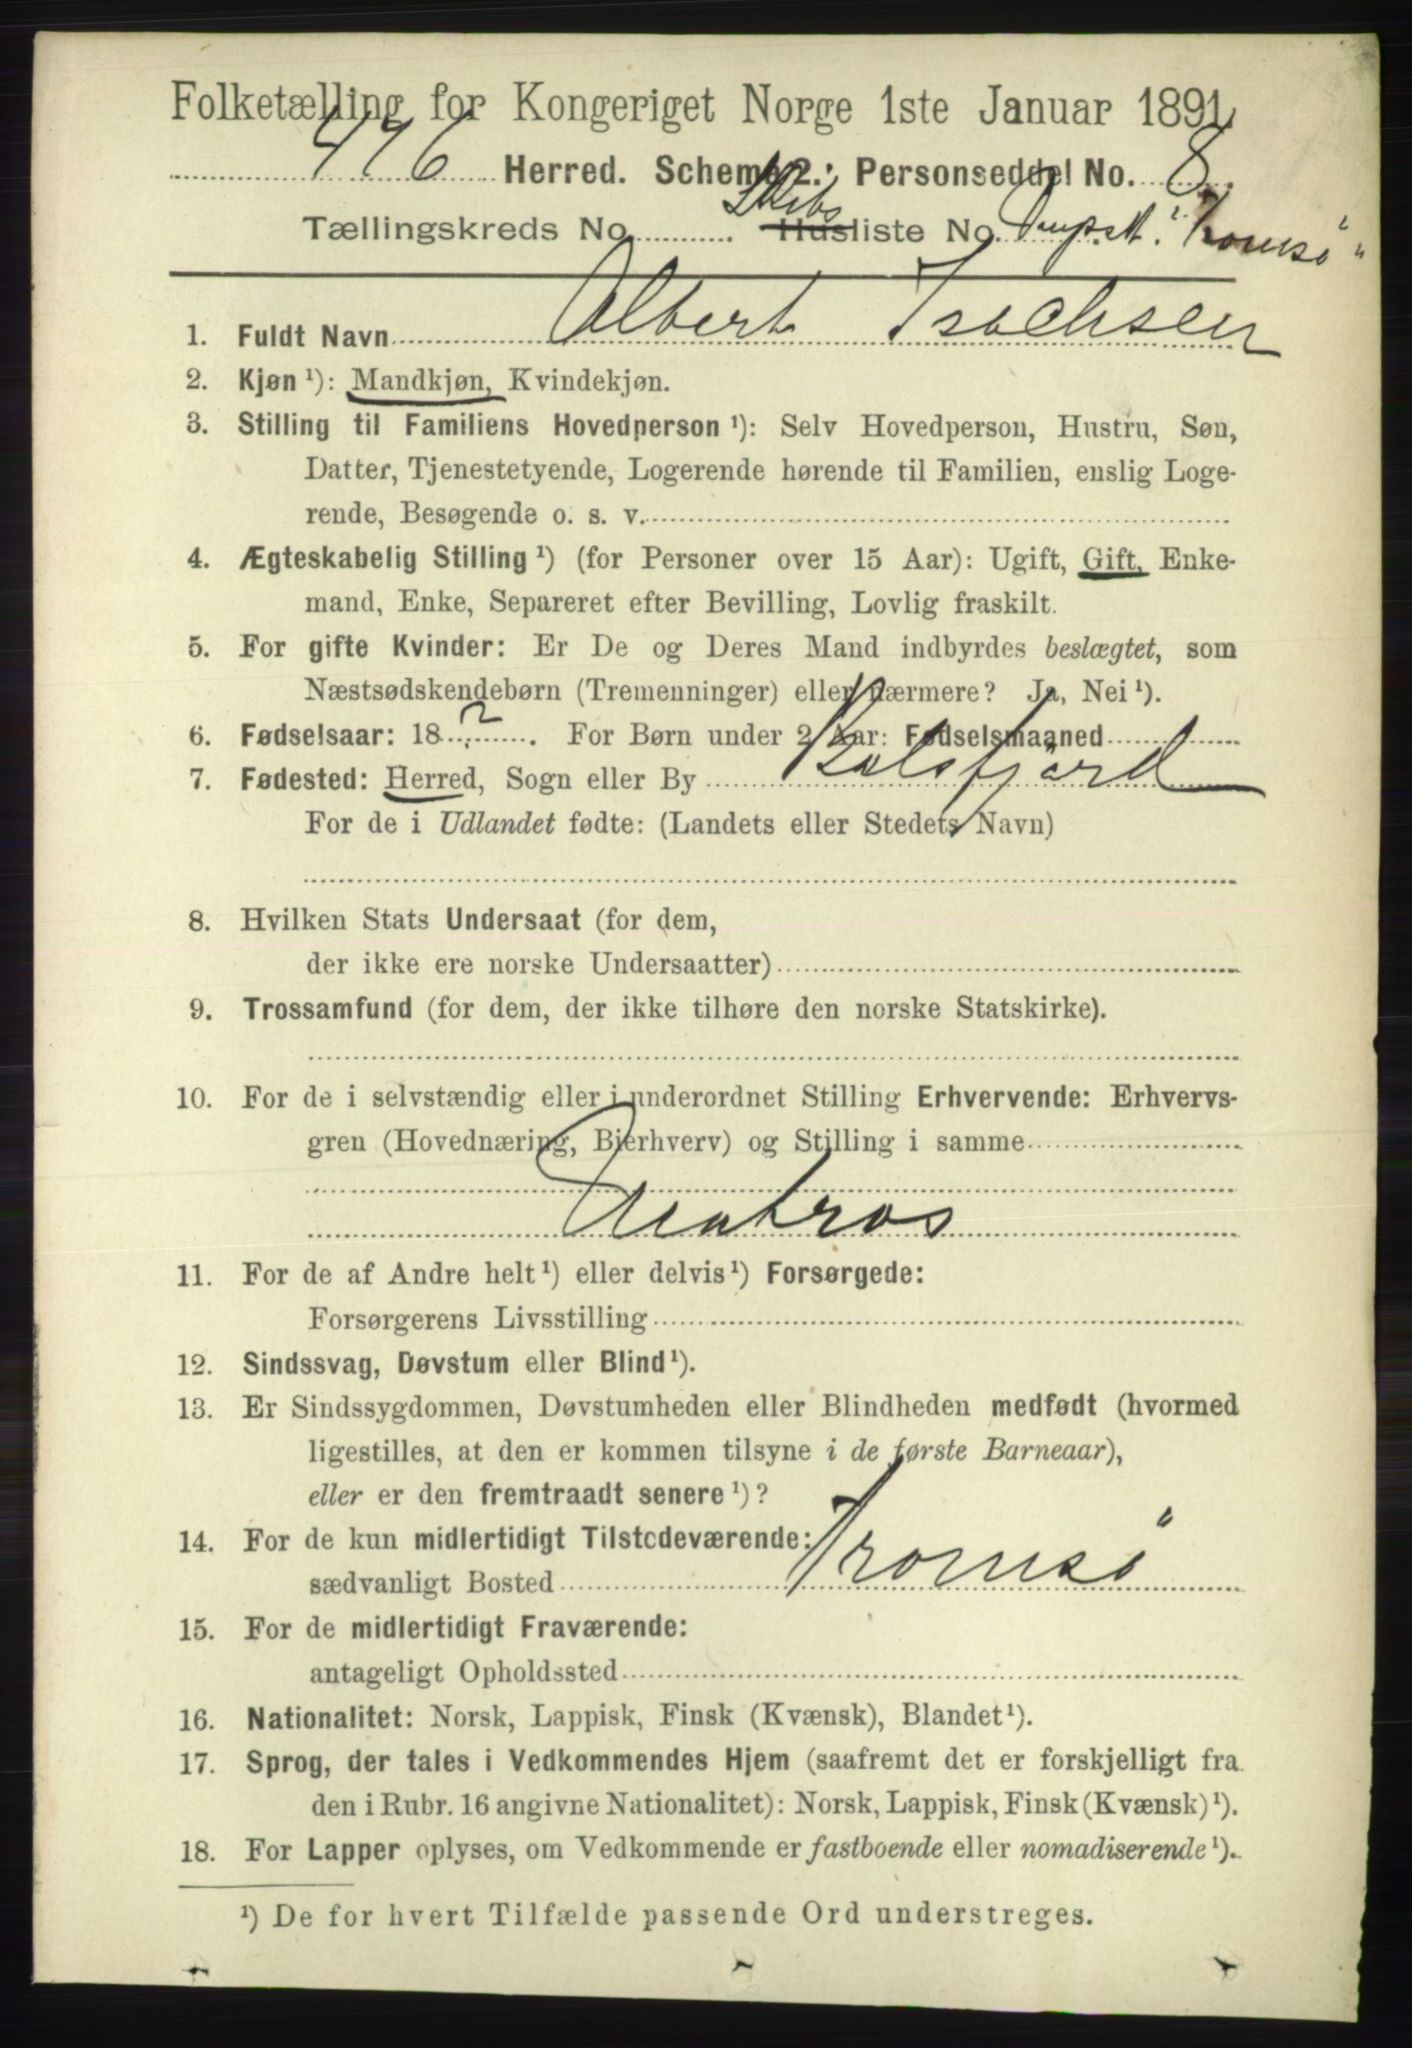 Folketælling for Kongeriget Norge 1ste Januar 1891.
476 Herred. Schema 2.: Personseddel No. 8.
Tællingskreds No. Skibs Husliste No. Dampsk. "Tromsö"
1. Fuldt Navn Albert Isachsen
2. Kjøn ¹): Mandkjøn, Kvindekjøn.
3. Stilling til Familiens Hovedperson ¹): Selv Hovedperson, Hustru, Søn,
Datter, Tjenestetyende, Logerende hørende til Familien, enslig Loge-
rende, Besøgende o. s. v.
4. Ægteskabelig Stilling ¹) (for Personer over 15 Aar): Ugift, Gift, Enke-
mand, Enke, Separeret efter Bevilling, Lovlig fraskilt.
5. For gifte Kvinder: Er De og Deres Mand indbyrdes beslægtet, som
Næstsødskendebørn (Tremenninger) eller nærmere? Ja, Nei ¹).
6. Fødselsaar: 18 ? . For Børn under 2 Aar: Fødselsmaaned
7. Fødested: Herred, Sogn eller By Balsfjord
For de i Udlandet fødte: (Landets eller Stedets Navn)
8. Hvilken Stats Undersaat (for dem,
der ikke ere norske Undersaatter)
9. Trossamfund (for dem, der ikke tilhøre den norske Statskirke).
10. For de i selvstændig eller i underordnet Stilling Erhvervende: Erhvervs-
gren (Hovednæring, Bierhverv) og Stilling i samme
Matros
11. For de af Andre helt ¹) eller delvis ¹) Forsørgede:
Forsørgerens Livsstilling
12. Sindssvag, Døvstum eller Blind ¹).
13. Er Sindssygdommen, Døvstumheden eller Blindheden medfødt (hvormed
ligestilles, at den er kommen tilsyne i de første Barneaar),
eller er den fremtraadt senere ¹)?
14. For de kun midlertidigt Tilstedeværende:
sædvanligt Bosted Tromsö
15. For de midlertidigt Fraværende:
antageligt Opholdssted
16. Nationalitet: Norsk, Lappisk, Finsk (Kvænsk), Blandet ¹).
17. Sprog, der tales i Vedkommendes Hjem (saafremt det er forskjelligt fra
den i Rubr. 16 angivne Nationalitet): Norsk, Lappisk, Finsk (Kvænsk) ¹).
18. For Lapper oplyses, om Vedkommende er fastboende eller nomadiserende ¹).
¹) De for hvert Tilfælde passende Ord understreges.